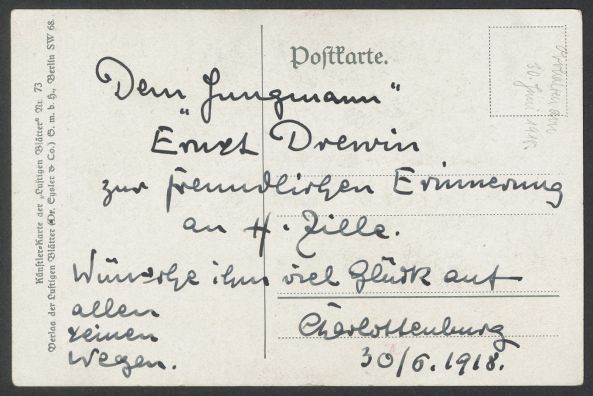 Postkarte.
Dem „Jungmann"
Ernst Drewin
zur freundlichen Erinnerung
an H. Zille.
Wünsche ihm viel Glück auf
allen
seinen
Wegen.
Charlottenburg
30/6. 1918.
Künstler-Karte der „Lustigen Blätter" Nr. 73
Verlag der Lustigen Blätter (Dr. Eysler & Co.) G. m. b. H., Berlin SW 68.
30. Juni